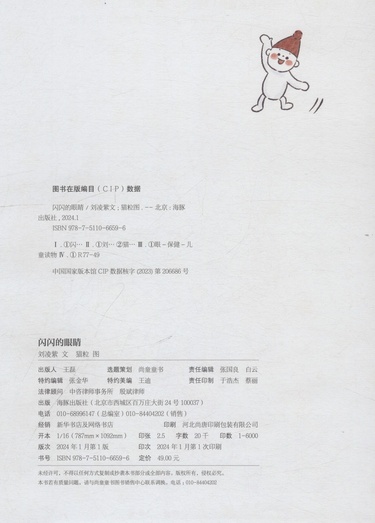 图书在版编目（CIP）数据
闪闪的眼睛 / 刘凌紫文；猫粒图 . -- 北京：海豚
出版社，2024.1
ISBN 978-7-5110-6659-6
Ⅰ . ①闪… Ⅱ . ①刘… ②猫… Ⅲ . ①眼－保健－儿
童读物 Ⅳ . ① R77-49
中国国家版本馆 CIP 数据核字 (2023) 第 206686 号
闪闪的眼睛
刘凌紫 文 猫粒 图
出版人 王磊 选题策划 尚童童书 责任编辑 张国良 白云
特约编辑 张金华 特约美编 王迪 责任印制 于浩杰 蔡丽
法律顾问 中咨律师事务所 殷斌律师
出版 海豚出版社（北京市西城区百万庄大街 24 号 100037）
电话 010-68996147（总编室）010-84404202（销售）
经销 新华书店及网络书店 印刷 河北尚唐印刷包装有限公司
开本 1/16 (787mm×1092mm) 印张 2.5 字数 20 千 印数 1-6000
版次 2024 年 1 月第 1 版 印次 2024 年 1 月第 1 次印刷
书号 ISBN 978-7-5110-6659-6 定价 49.00 元
未经许可，不得以任何方式复制或抄袭本书部分或全部内容。版权所有，侵权必究。
本书若有质量问题，请与尚童童书图书销售中心联系调换。电话：010-84404202